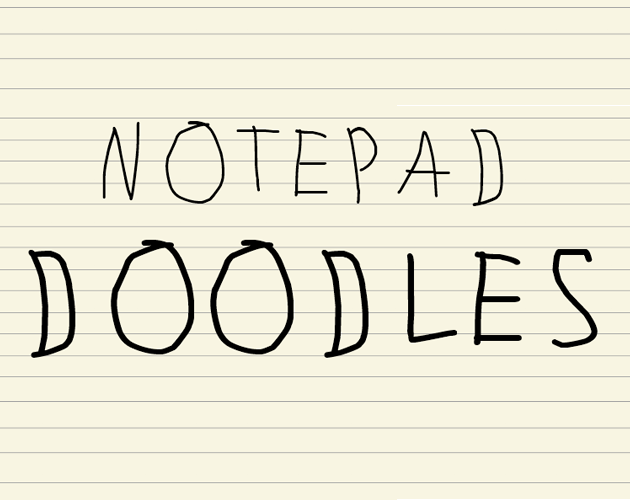 NOTEPAD
DOODLES